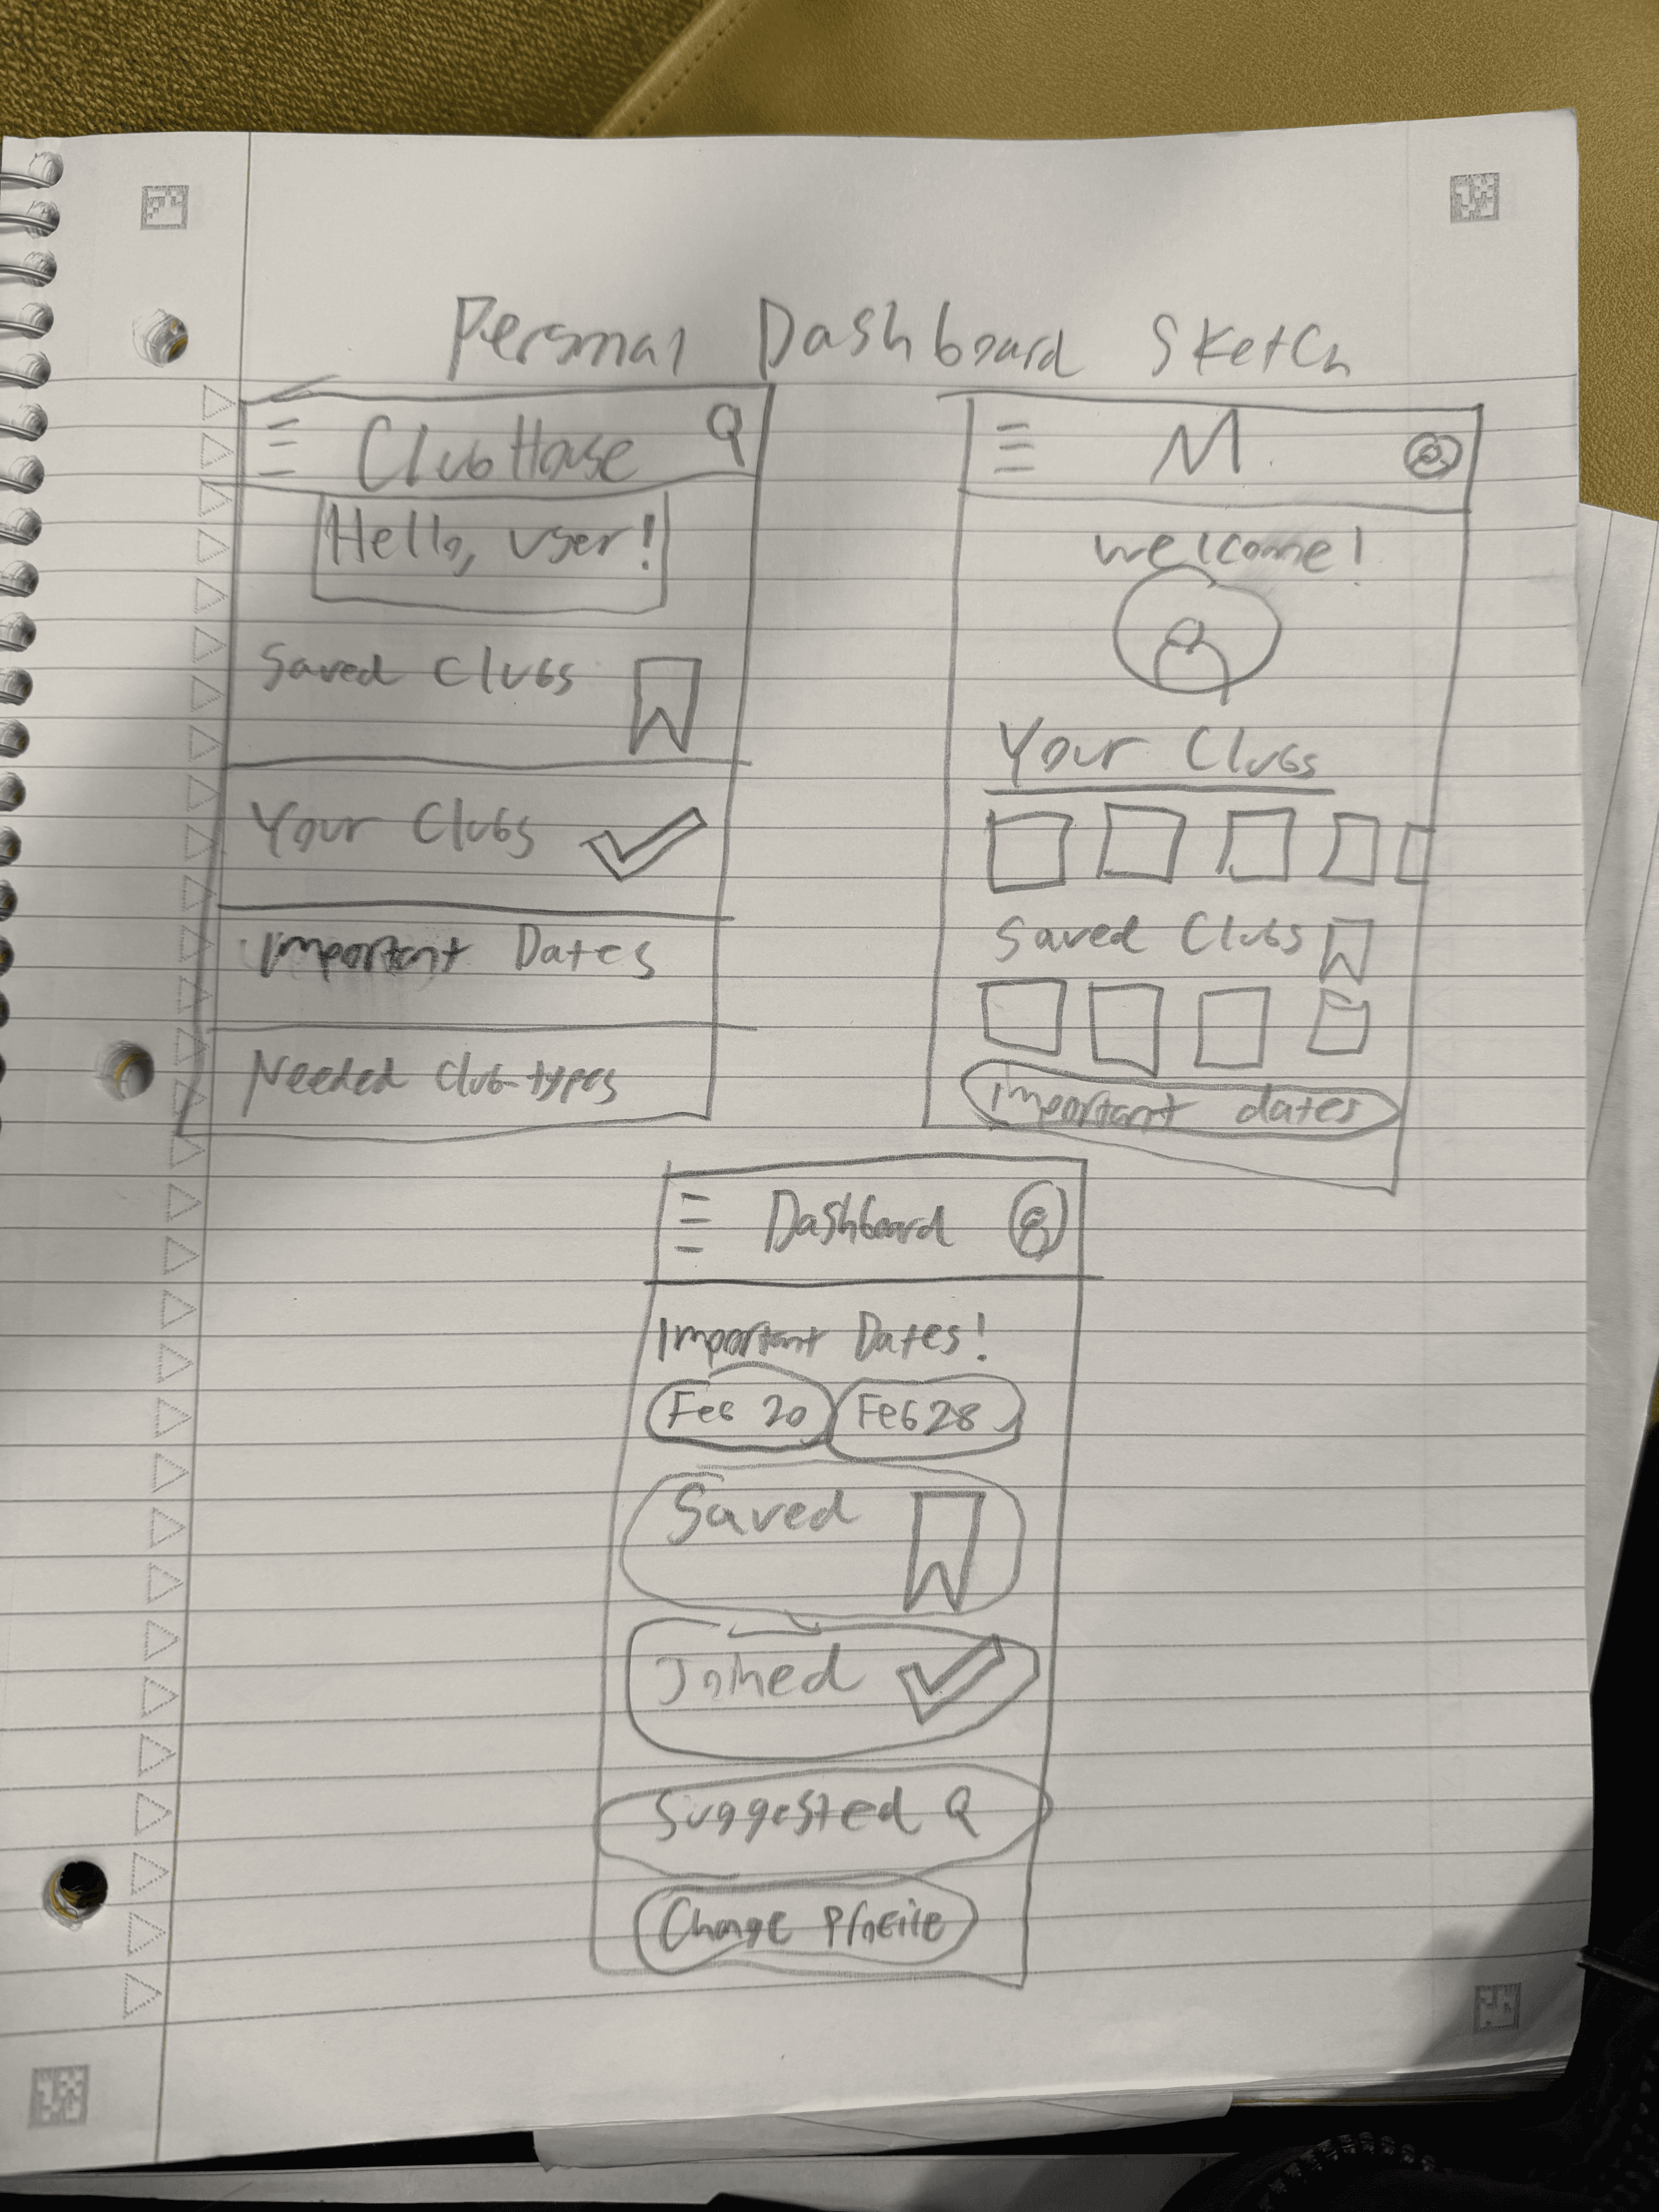 Personal Dashboard Sketch
ClubHouse
Hello, user!
Saved Clubs
Your Clubs
Important Dates
Needed Club-types
M
Welcome!
Your Clubs
Saved Clubs
important dates
Dashboard
Important Dates!
Feb 20 Feb 28
Saved
Joined
Suggested
Change Profile